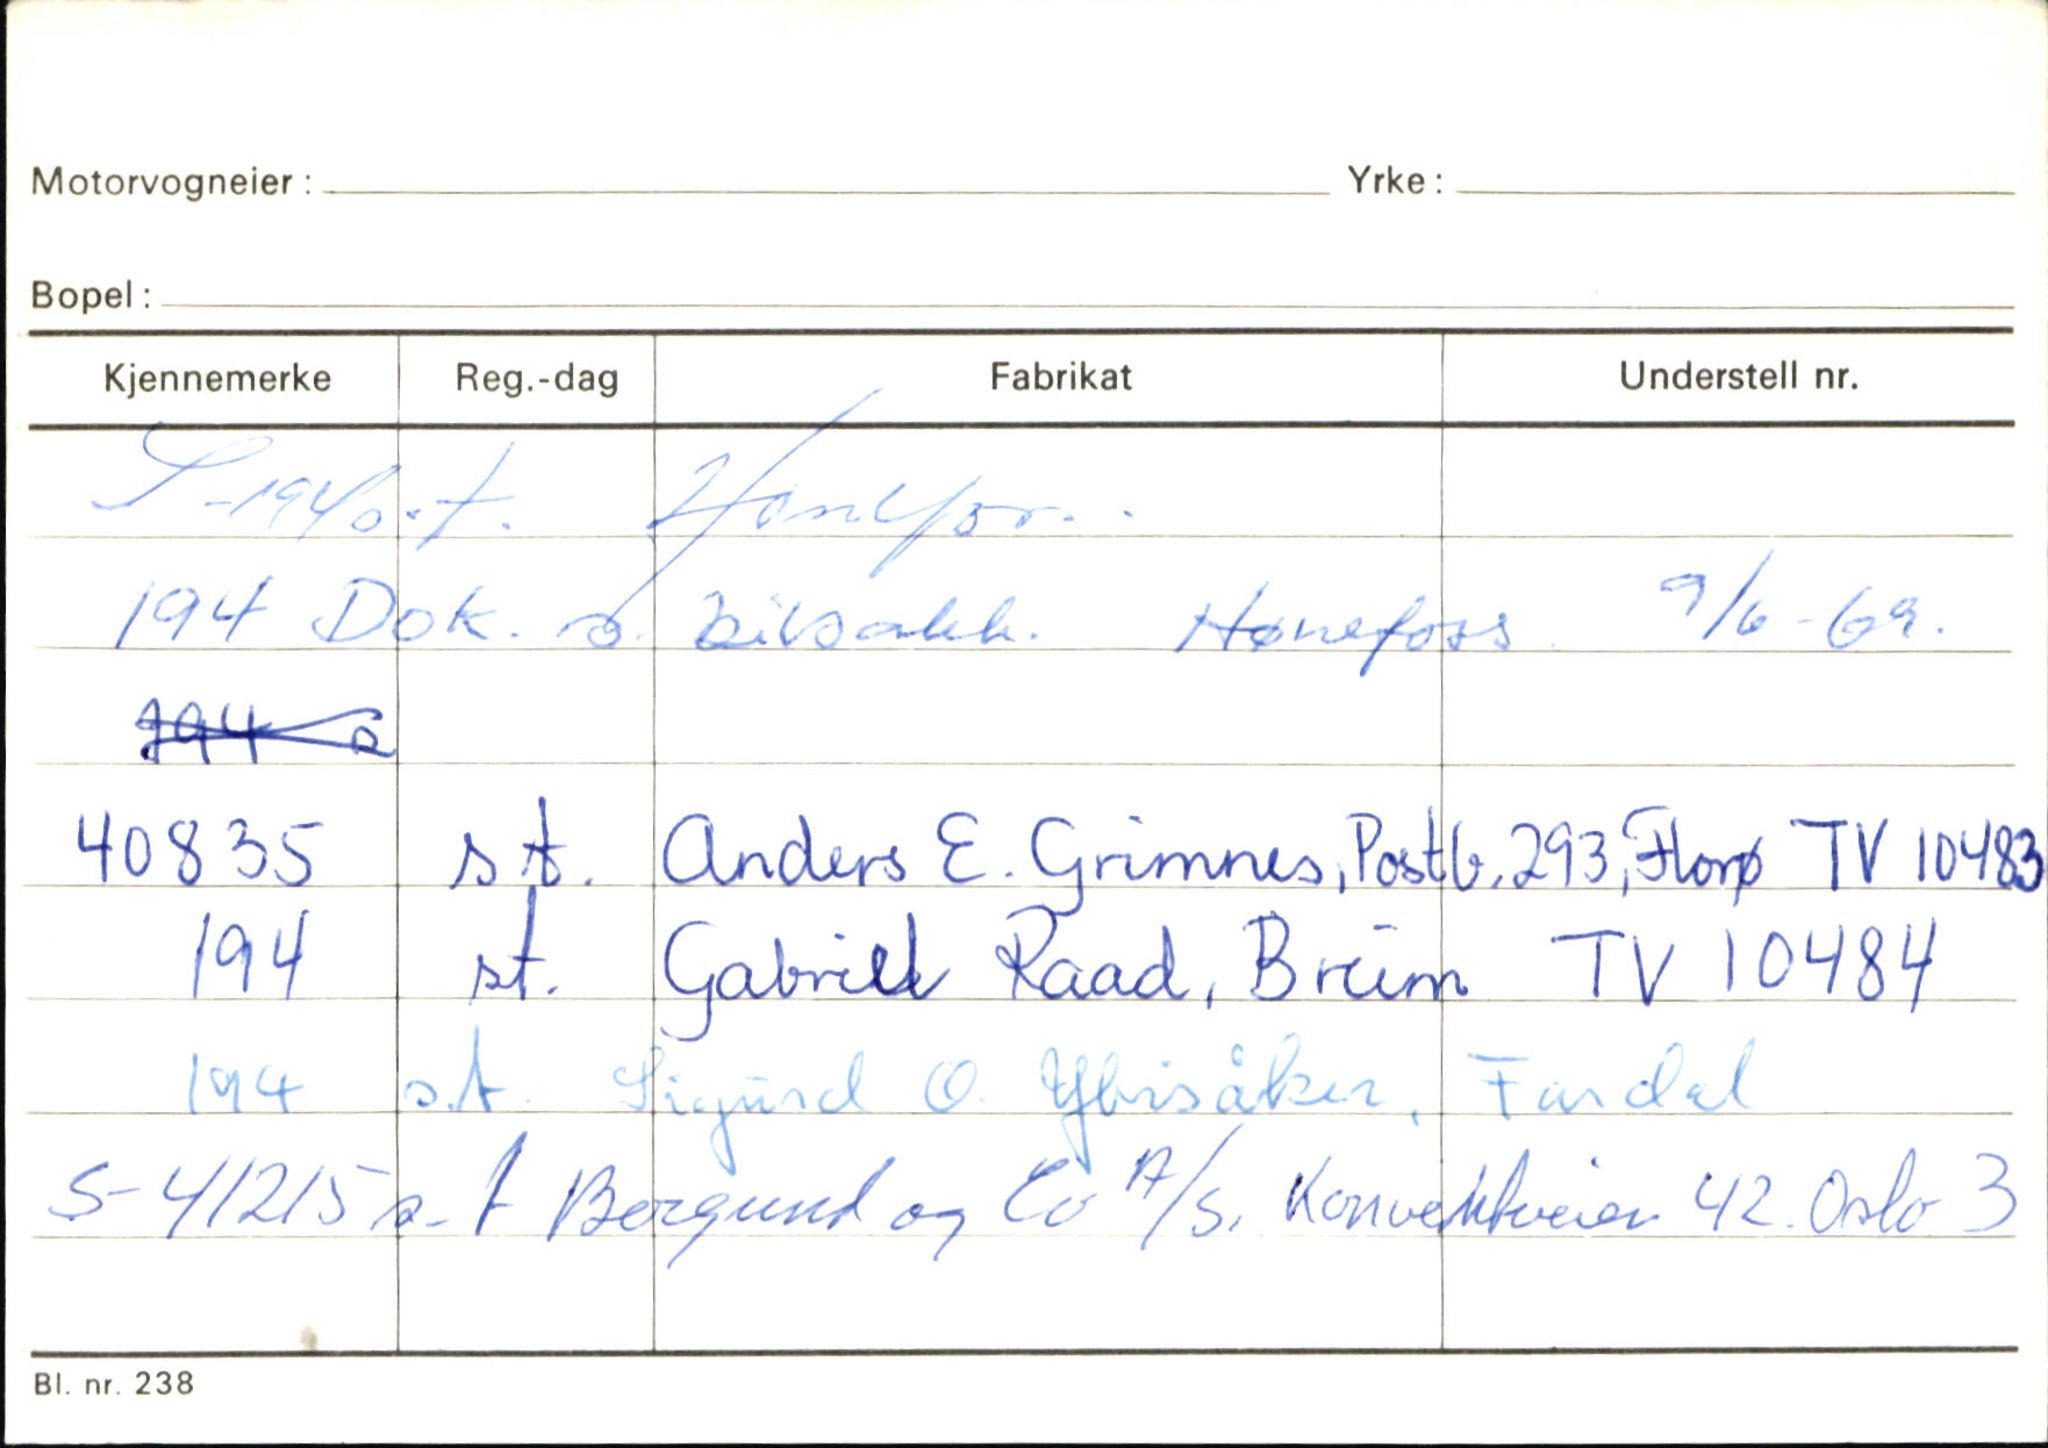 Motorvogneier: Yrke:
Bopel:
Kjennemerke Reg.-dag Fabrikat Understell nr.
S-194 s.t.
194 Dok. s. bilsakk. Hønefoss 9/6-69.
194 s
40835 s.t. Anders E. Grimnes, Postb. 293, Florø TV 10483
194 st. Gabriell Raad, Breim TV 10484
194 s.t. Sigurd O. Ybisåker, Fardal
S-41215 s.t Bergund og Co A/S. Konvektveien 42. Oslo 3
Bl. nr. 238